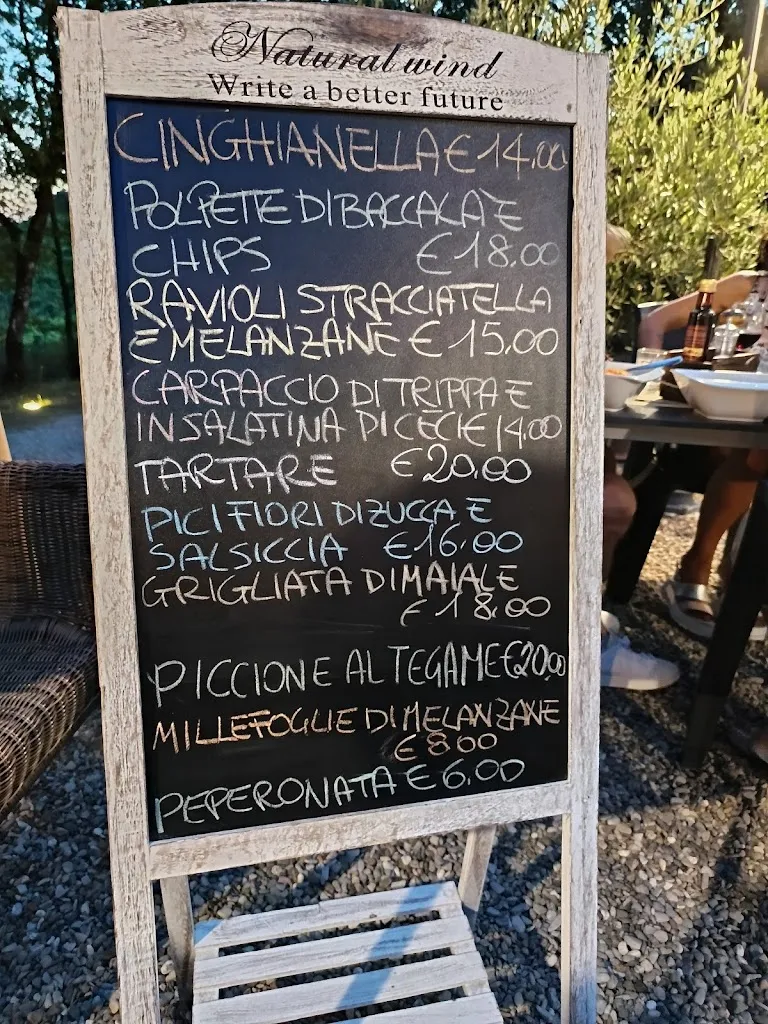 Natural wind
Write a better future
CINGHIANELLA € 14.00
POLPETTE DI BACCALÀ E
CHIPS € 18.00
RAVIOLI STRACCIATELLA
E MELANZANE € 15.00
CARPACCIO DI TRIPPA E
INSALATINA DI CECI € 14.00
TARTARE € 20.00
PICI FIORI DI ZUCCA E
SALSICCIA € 16.00
GRIGLIATA DI MAIALE
€ 18.00
PICCIONE AL TEGAME € 20.00
MILLEFOGLIE DI MELANZANE
€ 8.00
PEPERONATA € 6.00